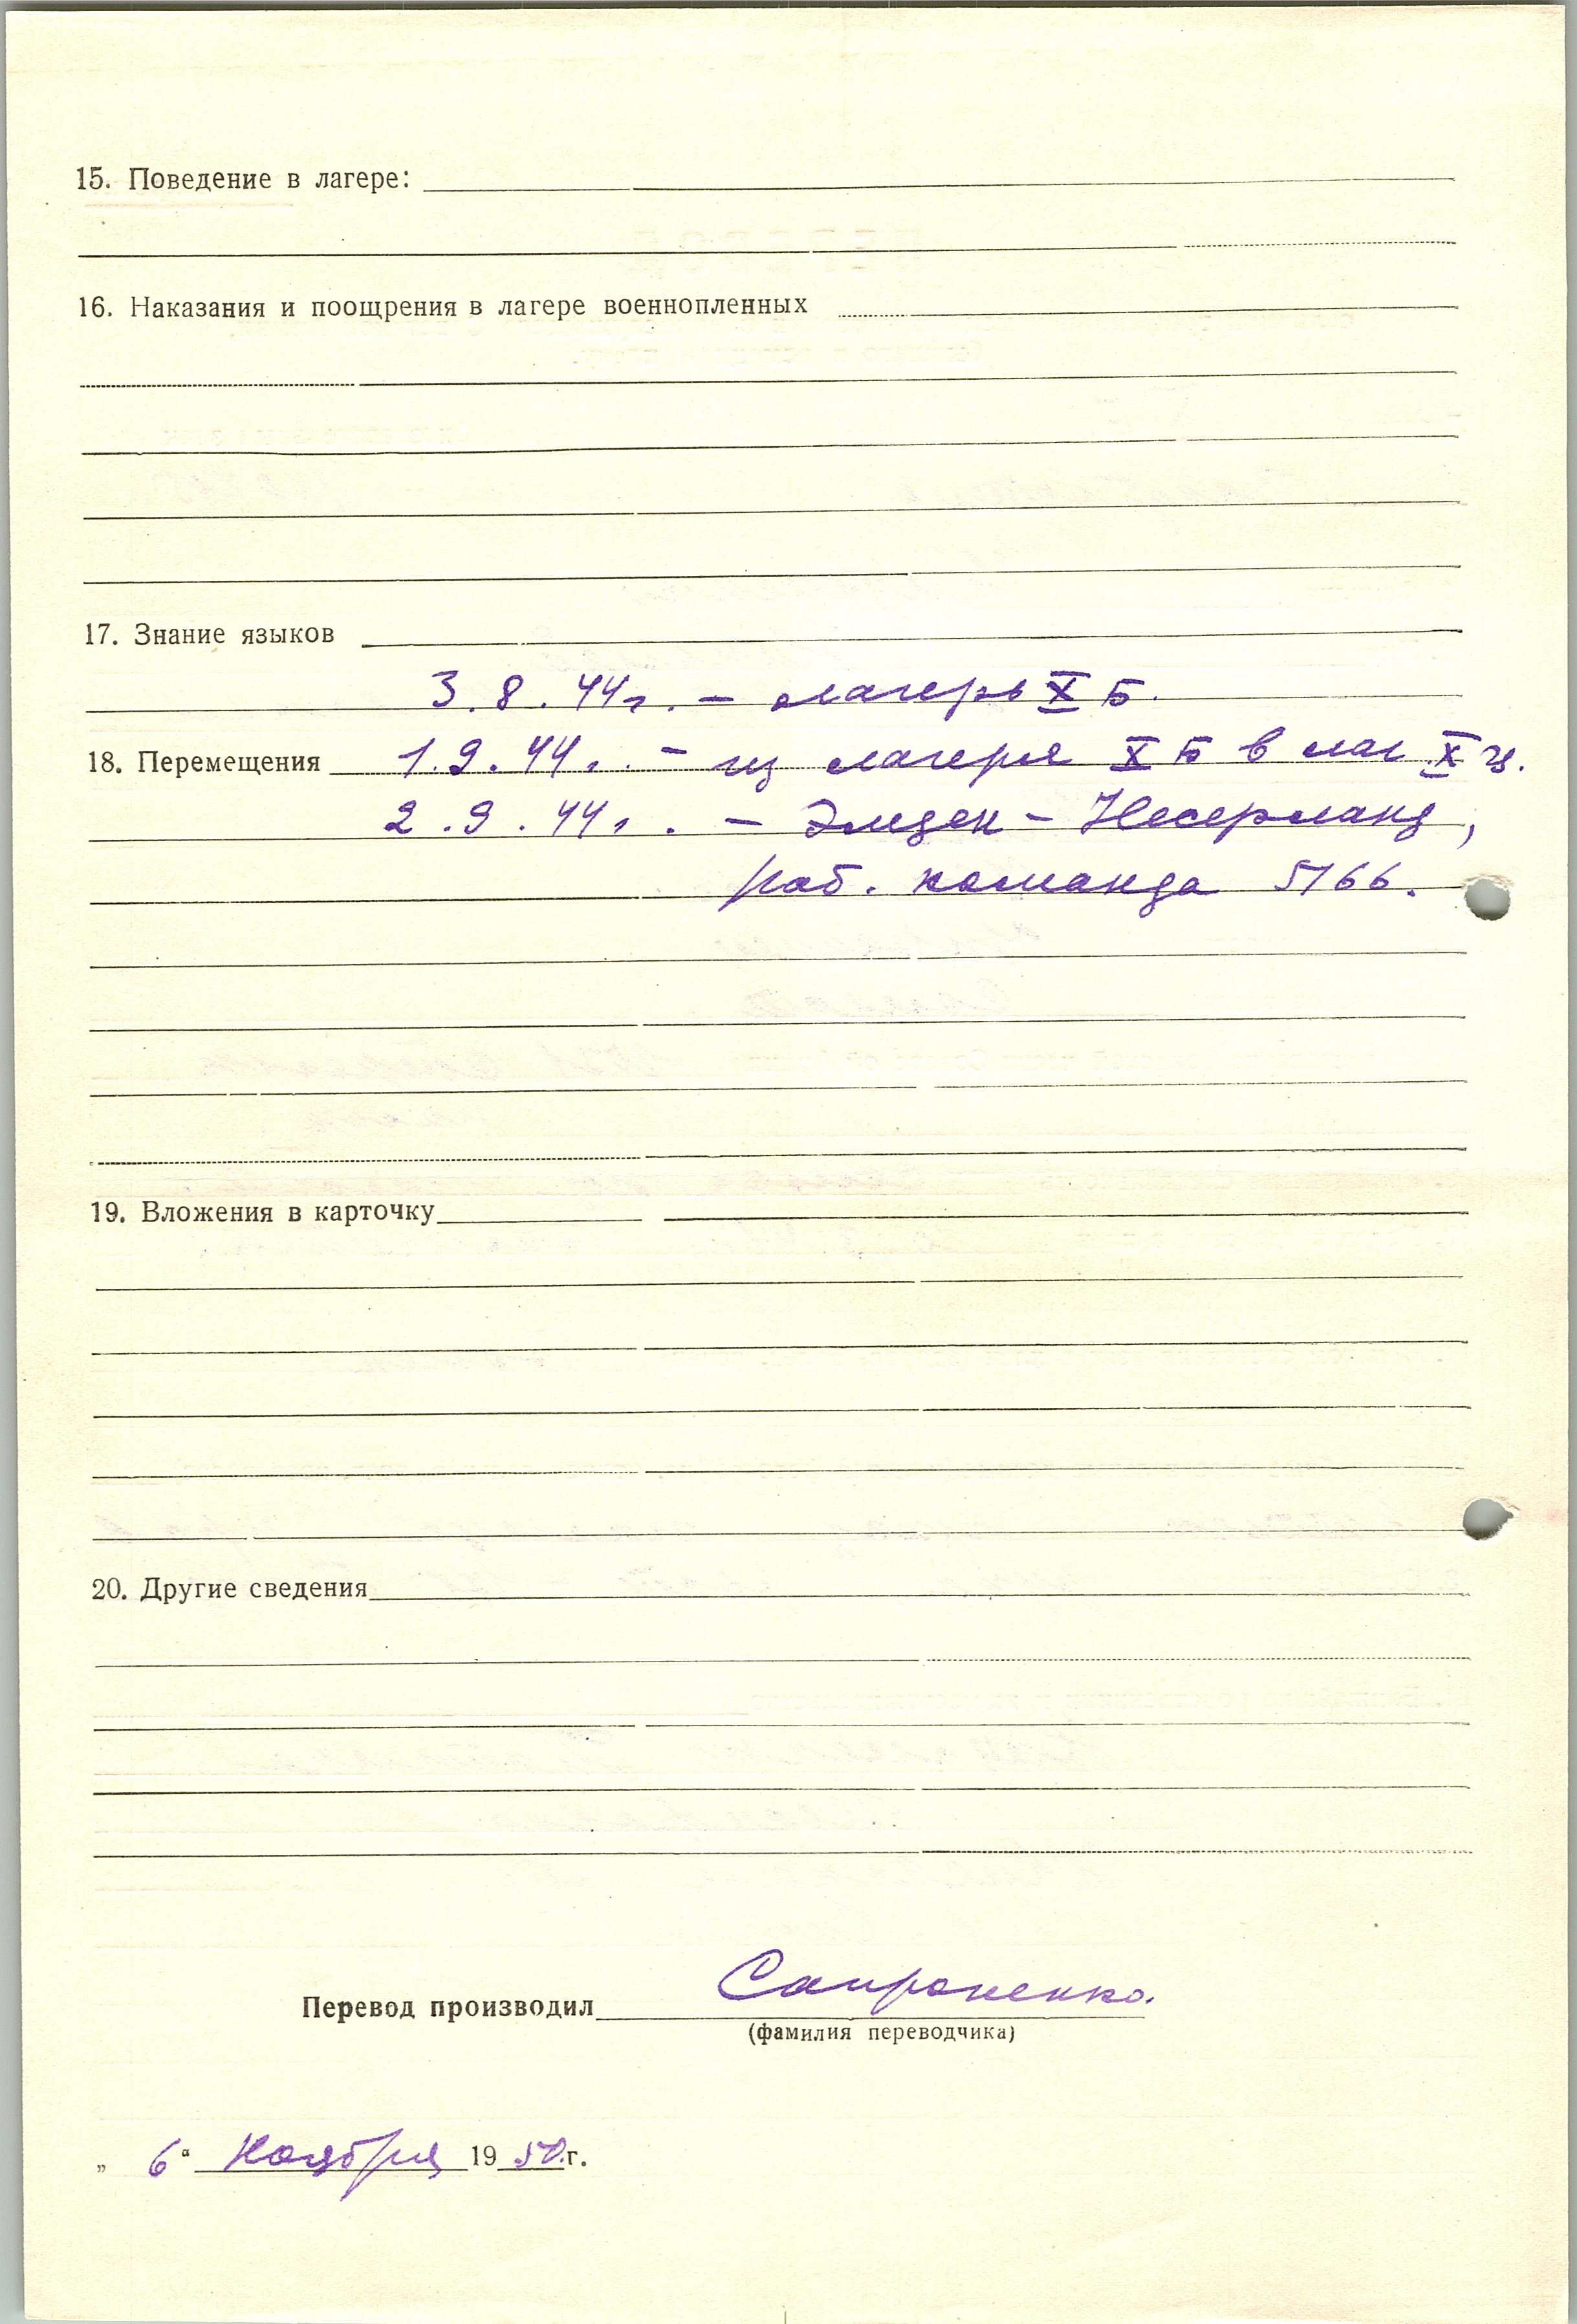 15. Поведение в лагере:
16. Наказания и поощрения в лагере военнопленных
17. Знание языков
3.8.44г. – лагерь X Б.
18. Перемещения 1.9.44г. – из лагеря X Б в лаг X Ц.
2.9.44г. – Эмден – Несерланд,
раб. команда 5166.
19. Вложения в карточку
20. Другие сведения
Перевод производил Сапроненко.
(фамилия переводчика)
„ 6" Ноября 1950г.